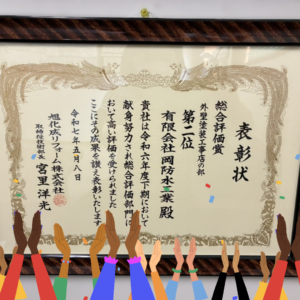 表彰状
総合評価賞
外壁塗装工事店の部
第二位
有限会社 岡防水工業 殿
貴社は令和六年度下期において
献身努力され総合評価部門に
おいて高い評価を受けられました
ここにその成果を讃え表彰いたします
令和七年五月八日
旭化成リフォーム株式会社
取締役技術部長
宮里洋光